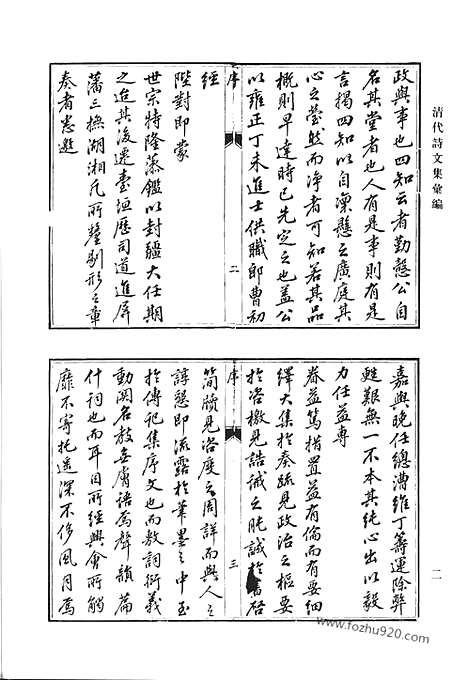 清代詩文集彙編
政與事也四知云者勤懇公自
名其堂者也人有是事則有是
言揭四知以自凜懸之廣庭其
心之瑩然而淨者可知若其品
概則早達時已先定之也蓋公
以雍正丁未進士供職郎曹初
序
二
經
陛對即蒙
世宗特隆藻鑑以封疆大任期
之迨其後遷臺洹歷司道進屏
藩三撫湖湘凡所釐剔形之章
奏者悉邀
嘉與晚任總漕維丁籌運除弊
甦艱無一不本其純心出以毅
力任益專
眷益篤措置益有倫而有要細
繹大集於奏疏見政治之樞要
於咨檄見誥誡之肫誠於書啓
序
三
簡牘見咨度之周詳而與人之
諄懇即流露於筆墨之中至
於傳記集序文也而敷詞衍義
動關名教無膚語焉聲韻篇
什詞也而耳目所經興會所觸
靡不寄托遙深不侈風月焉
二
www.fozhu920.com